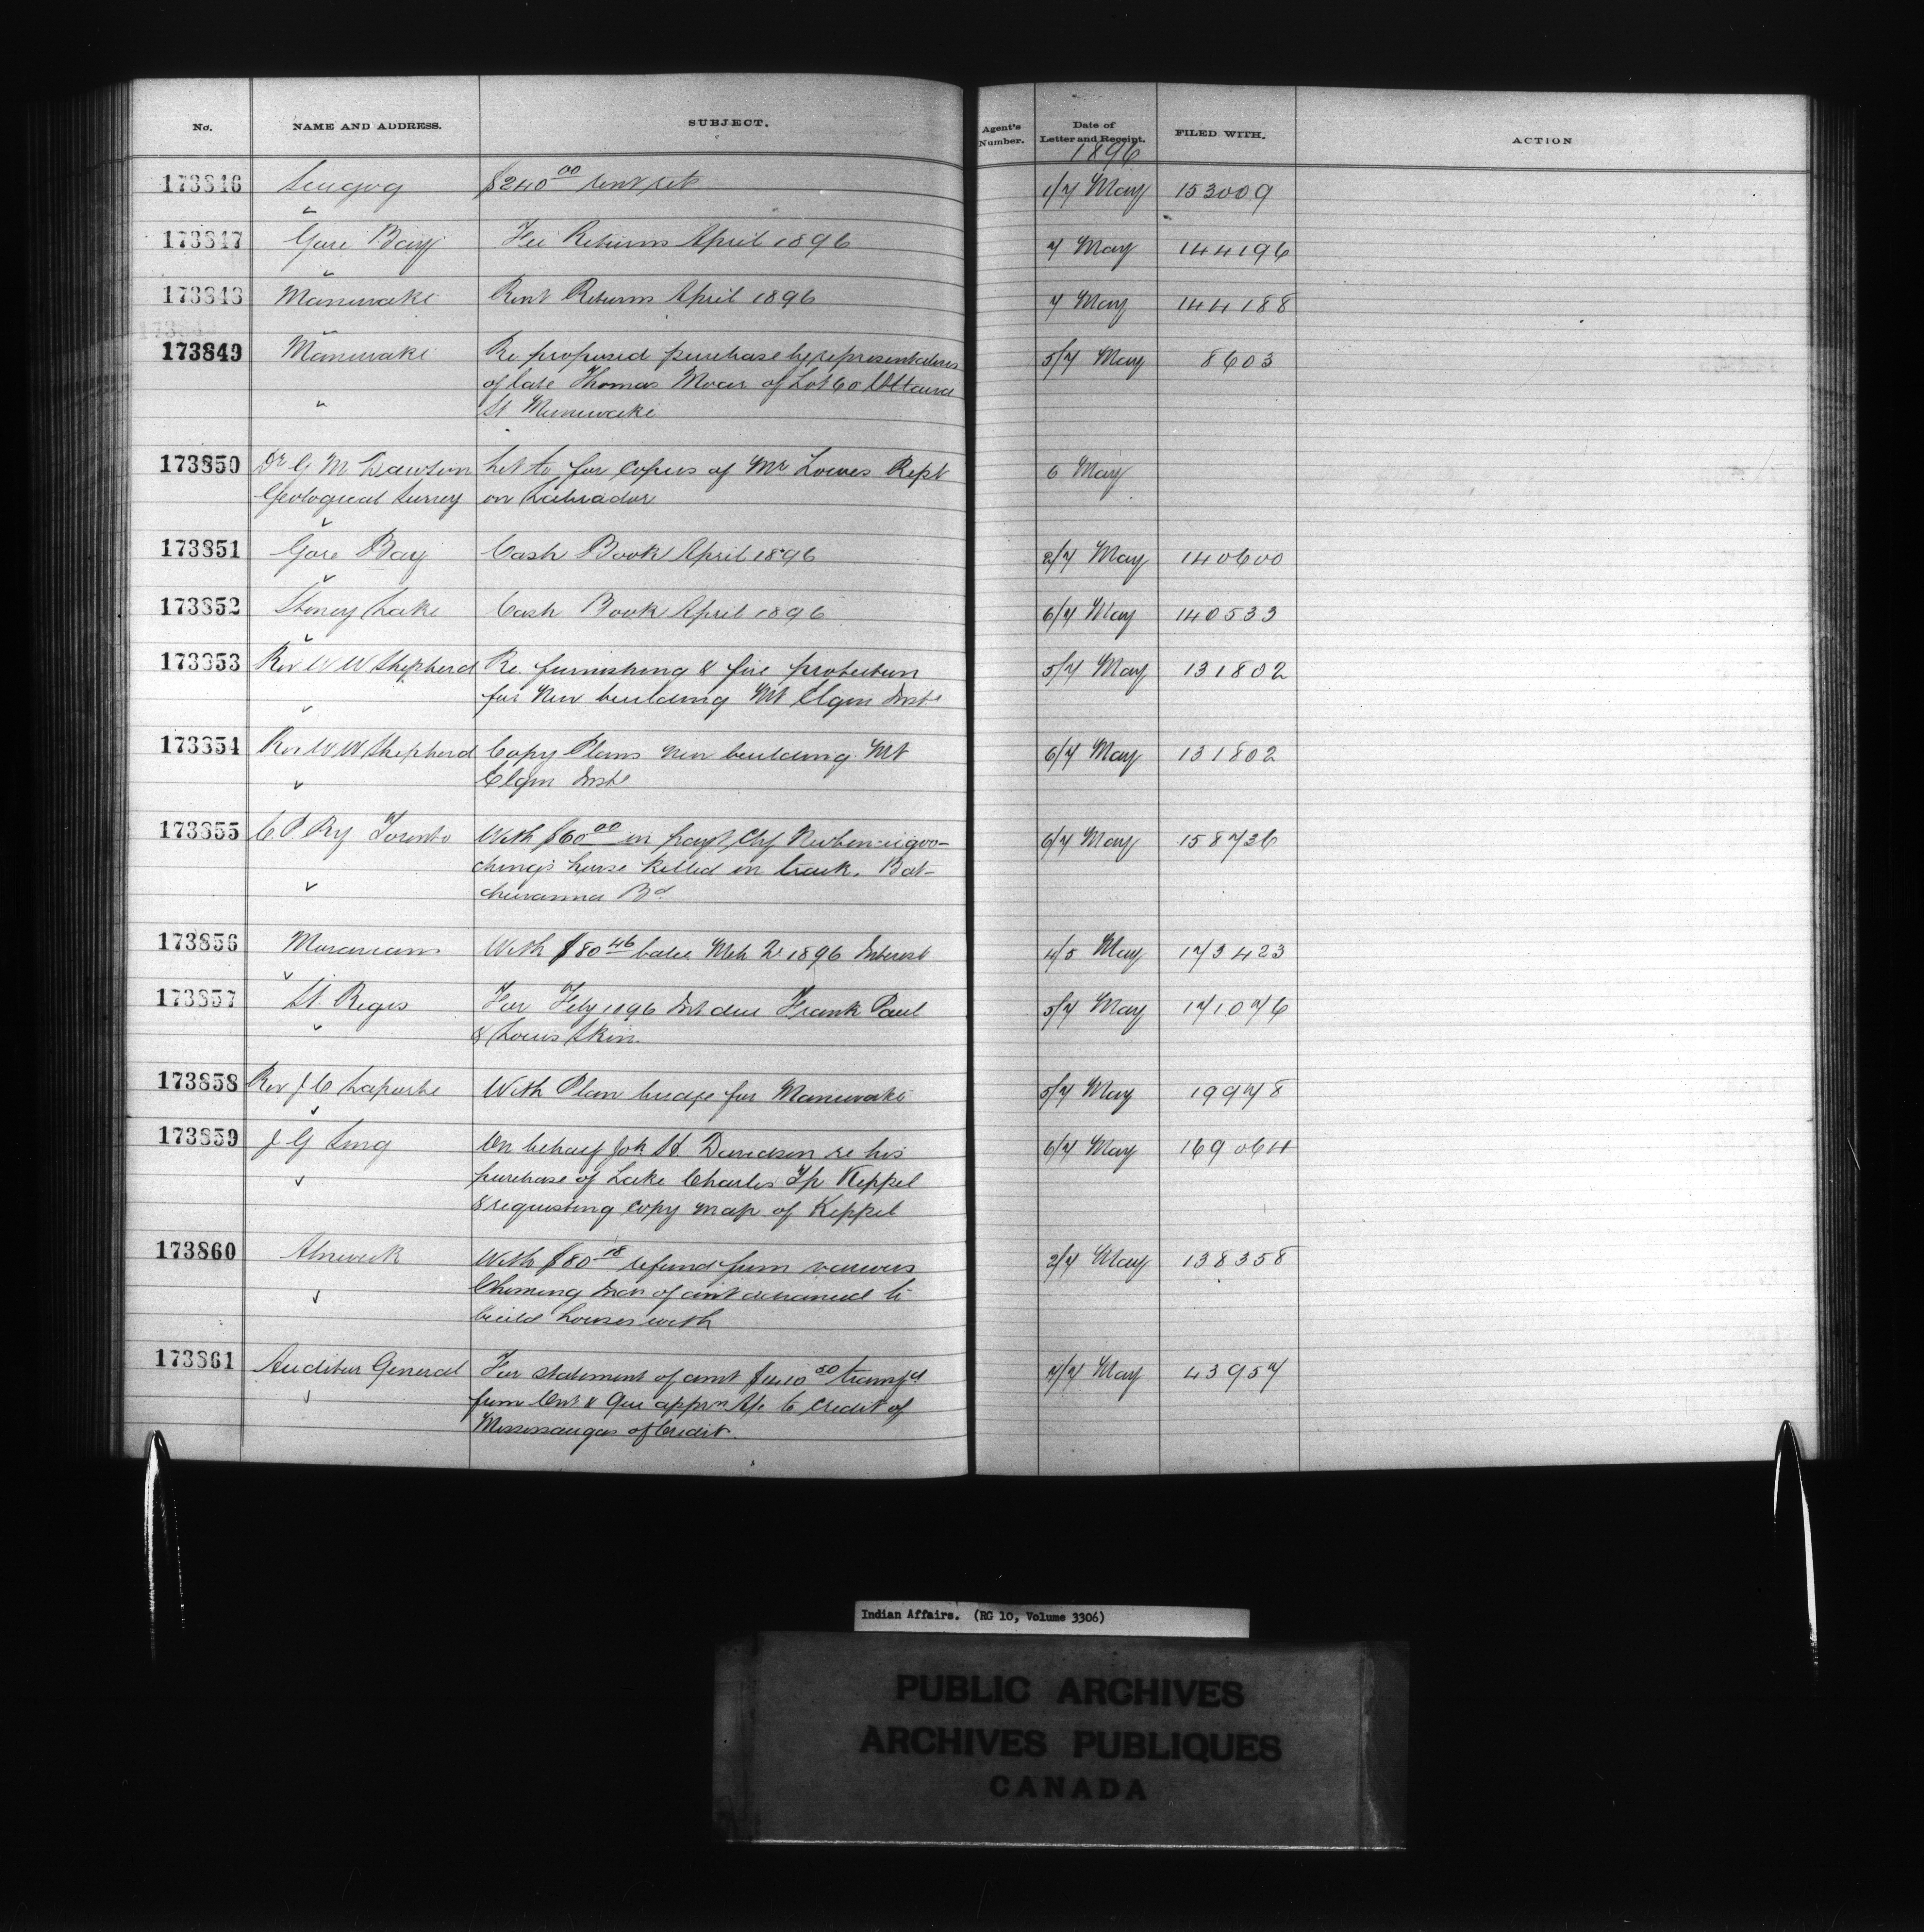 No. NAME AND ADDRESS. SUBJECT. Agent's Number. Date of Letter and Receipt. FILED WITH. ACTION
1896
173846 Scugog $240 00 rent 1/7 May 153009
173847 Gore Bay Fee Returns April 1896 7 May 144196
173848 Maniwaki Rent Returns April 1896 7 May 144188
173849 Maniwaki Re proposed purchase by representatives 5/7 May 8603
of late Thomas Moar of Lot 60 Ottawa
" St Maniwaki
173850 Dr G M Dawson Let to for copies of Mr Lowes Rept 6 May
Geological Survey on Labrador
173851 Gore Bay Cash Book April 1896 2/7 May 140600
173852 Stoney Lake Cash Book April 1896 6/7 May 140533
173853 Rev W W Shepherd Re. furnishing & fire protection 5/7 May 131802
for New building Mt Elgin Inste
173854 Rev W W Shepherd Copy Plans new building Mt 6/7 May 131802
Elgin Inste
173855 C. P. Ry Toronto With $60 00 in payt Chf 6/7 May 158736
ching's horse killed on track. Bat-
chewanna Bd
173856 Moravians With $80 46 balce Mch 1896 Interest 4/5 May 173423
173857 St. Regis For Feby 1896 Int due Frank Paul 5/7 May 171076
& Louis Skin.
173858 Rev J C Laporte With Plan bridge for Maniwaki 5/7 May 19978
173859 J G Sing On behalf Jok H. Davidson re his 6/7 May 169064
purchase of Lake Charles Tp Keppel
& requesting copy map of Keppel
173860 Alnwick With $80 18 refund from various 2/7 May 138358
Inds of amt advanced to
build houses with
173861 Auditor General For statement of amt $1410 50 transfd 7/7 May 43957
from Ont & Que apprn A/c to credit of
Mississaugas of Credit.
Indian Affairs. (RG 10, Volume 3306)
PUBLIC ARCHIVES
ARCHIVES PUBLIQUES
CANADA